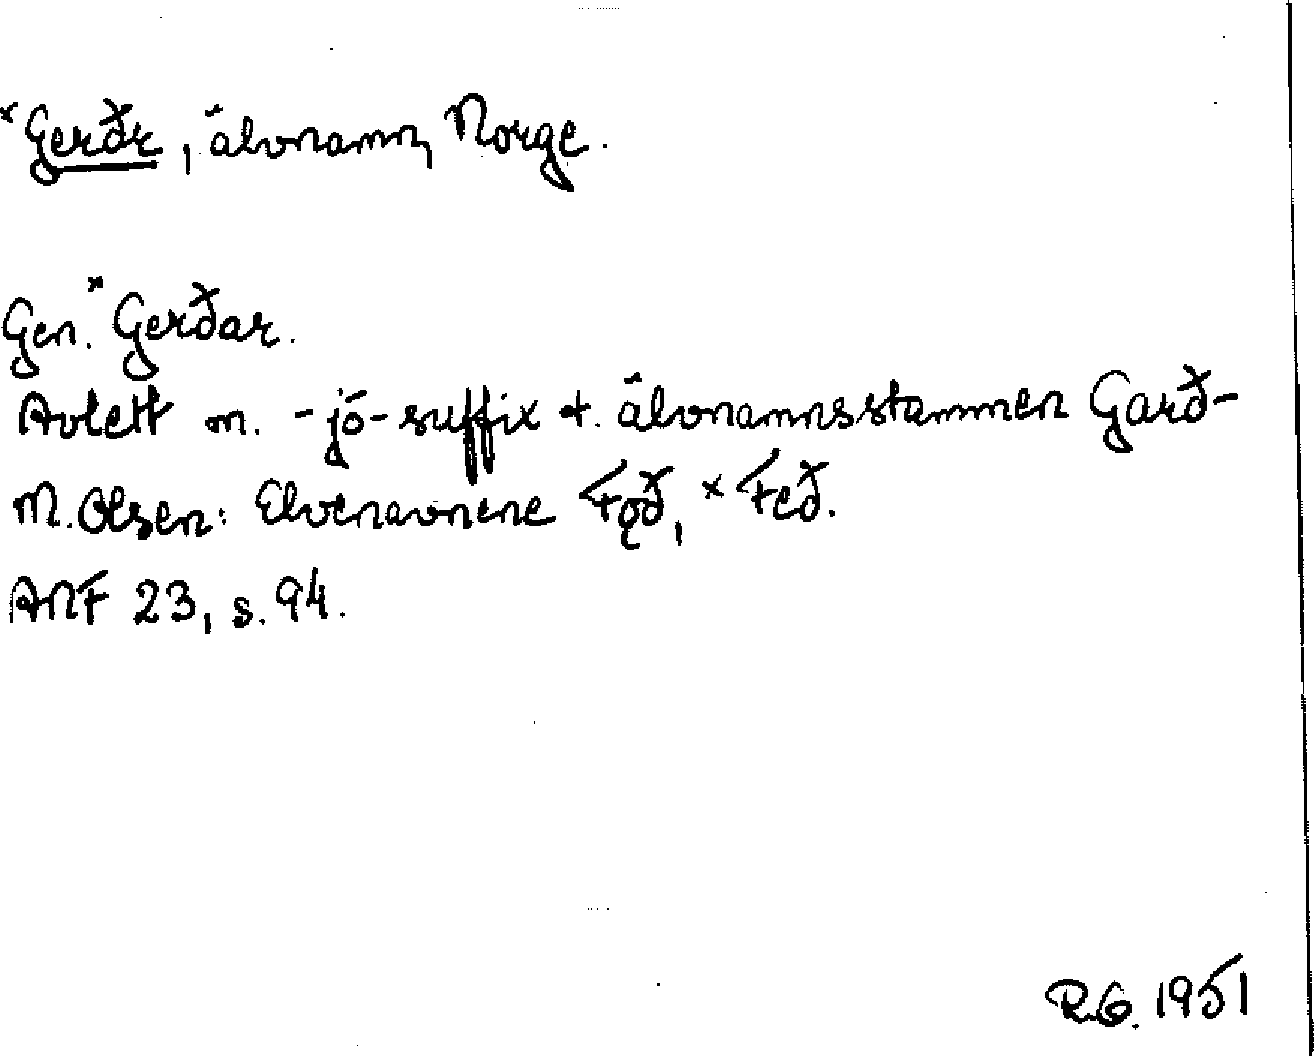 *Gerðr, älvnamn, Norge.
Gen. *Gerðar.
Avlett m. -jó-suffix t. älvnamnsstammen Garð-
M. Olsen: Elvenavnene Fǫð, *Feð.
ANF 23, s. 94.
R.G. 1951